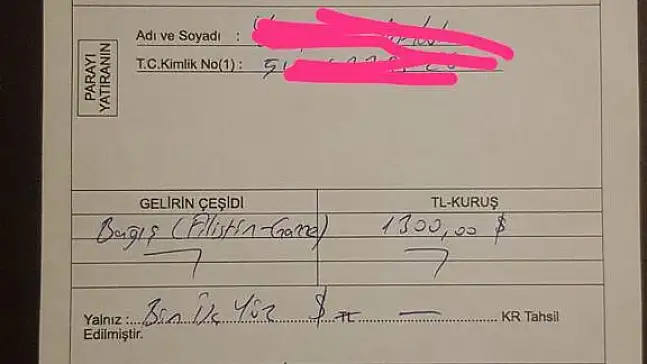 PARAYI
YATIRANIN
Adı ve Soyadı :
T.C.Kimlik No(1) :
GELİRİN ÇEŞİDİ TL-KURUŞ
Bağış (Filistin-Gazze) 1300,00 $
Yalnız : Bin Üç Yüz $ TL — KR Tahsil
Edilmiştir.